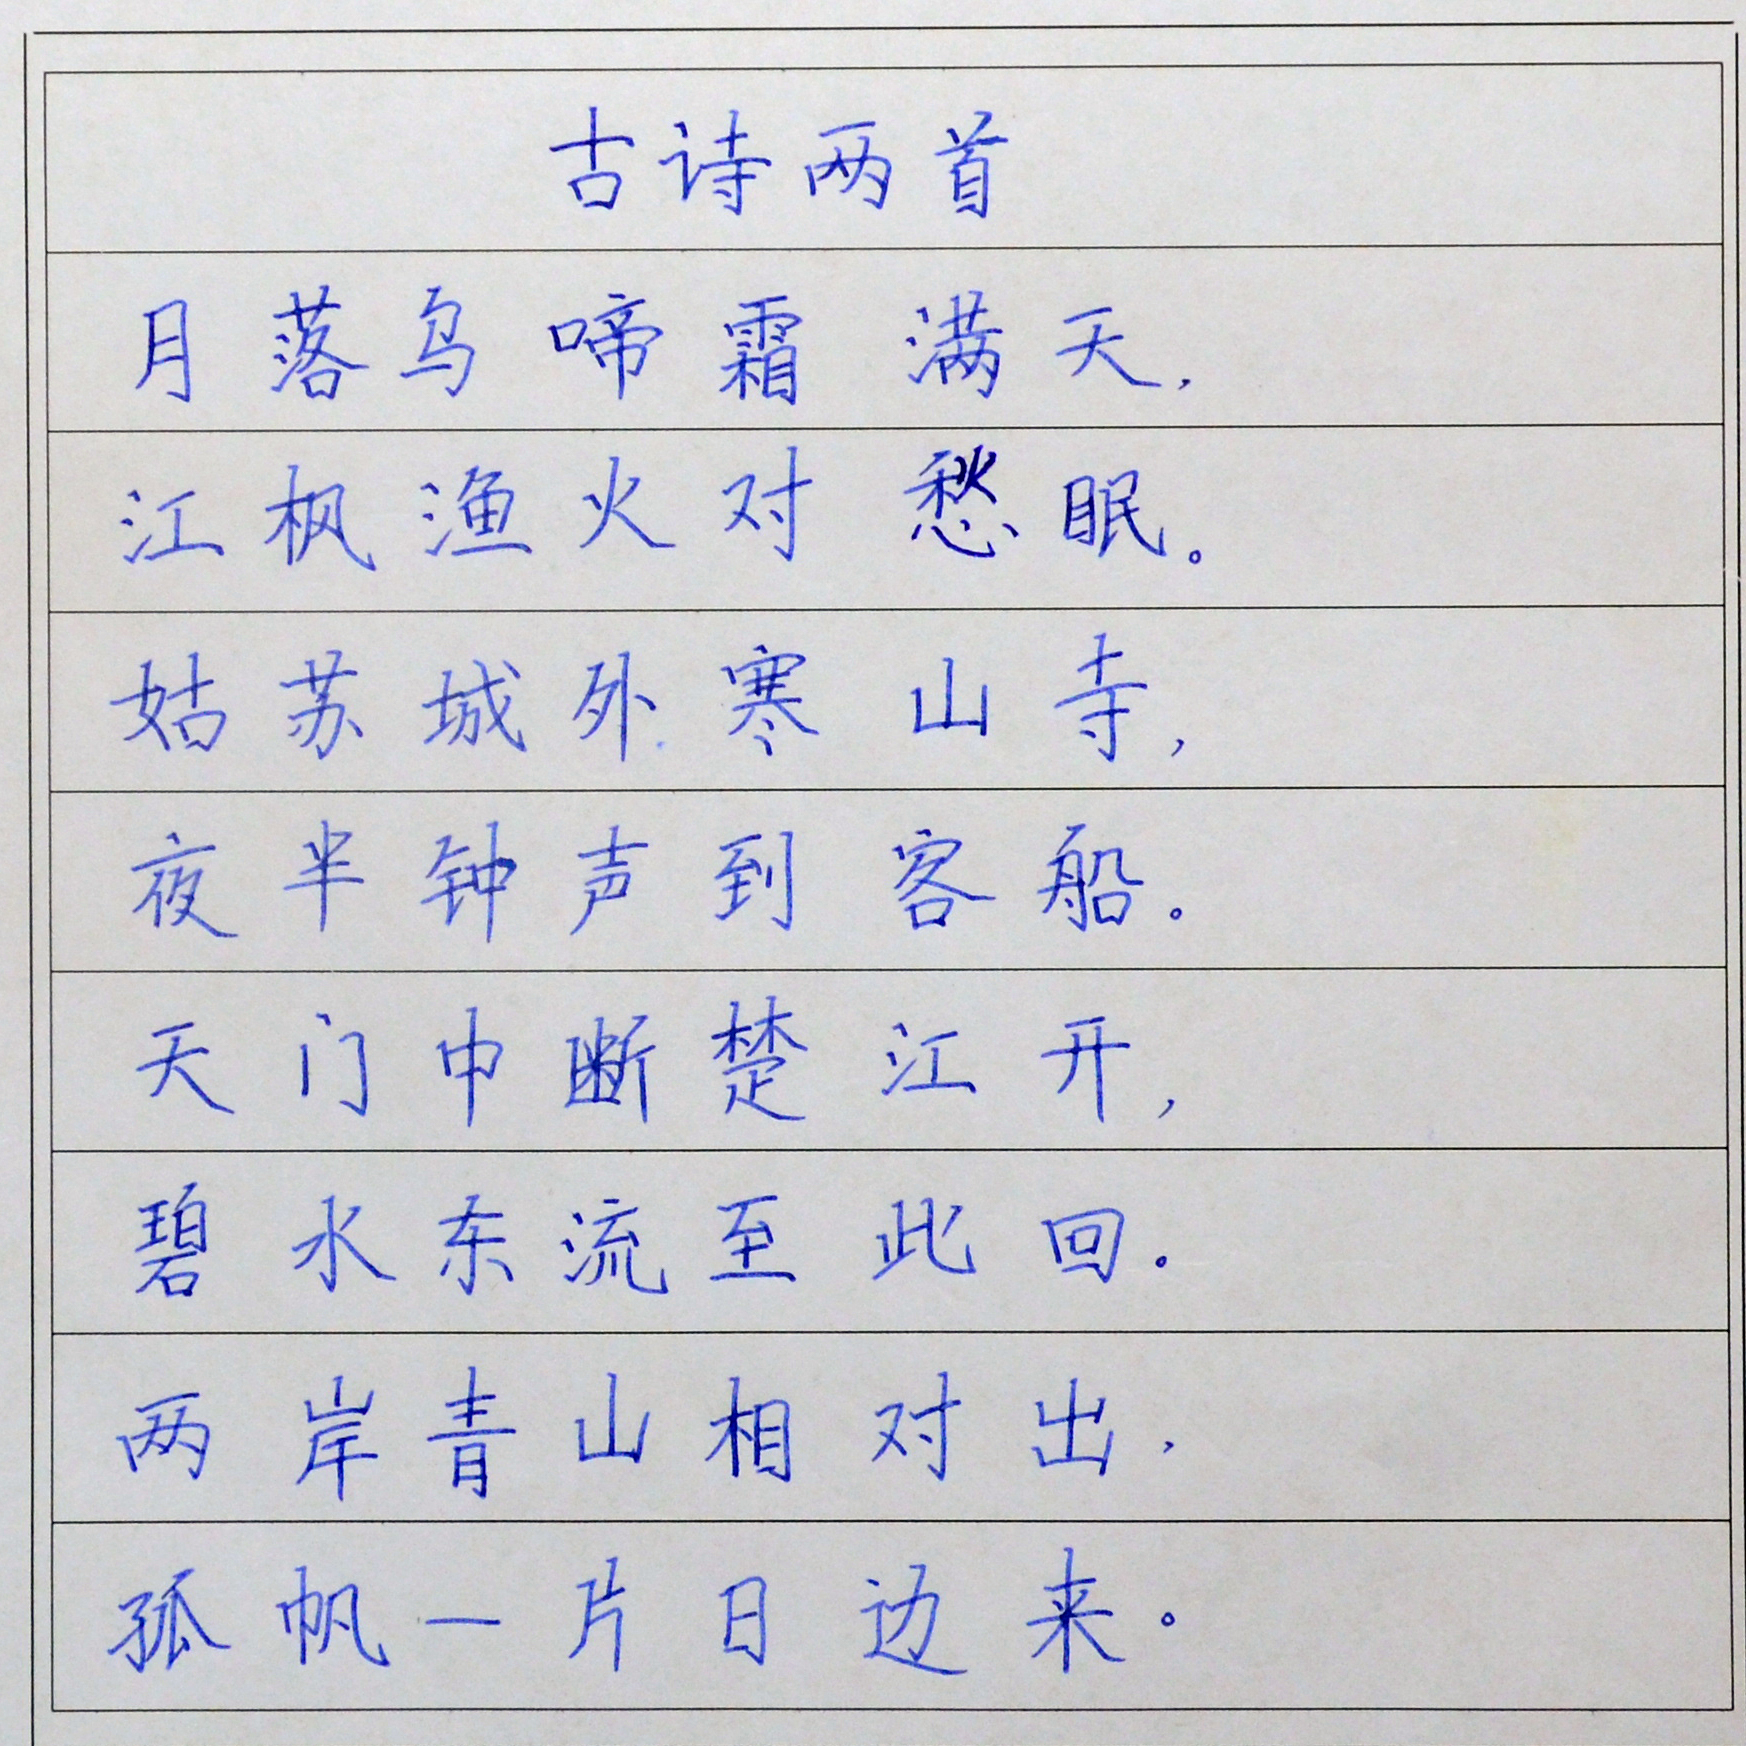 古诗两首
月落乌啼霜满天，
江枫渔火对愁眠。
姑苏城外寒山寺，
夜半钟声到客船。
天门中断楚江开，
碧水东流至此回。
两岸青山相对出，
孤帆一片日边来。